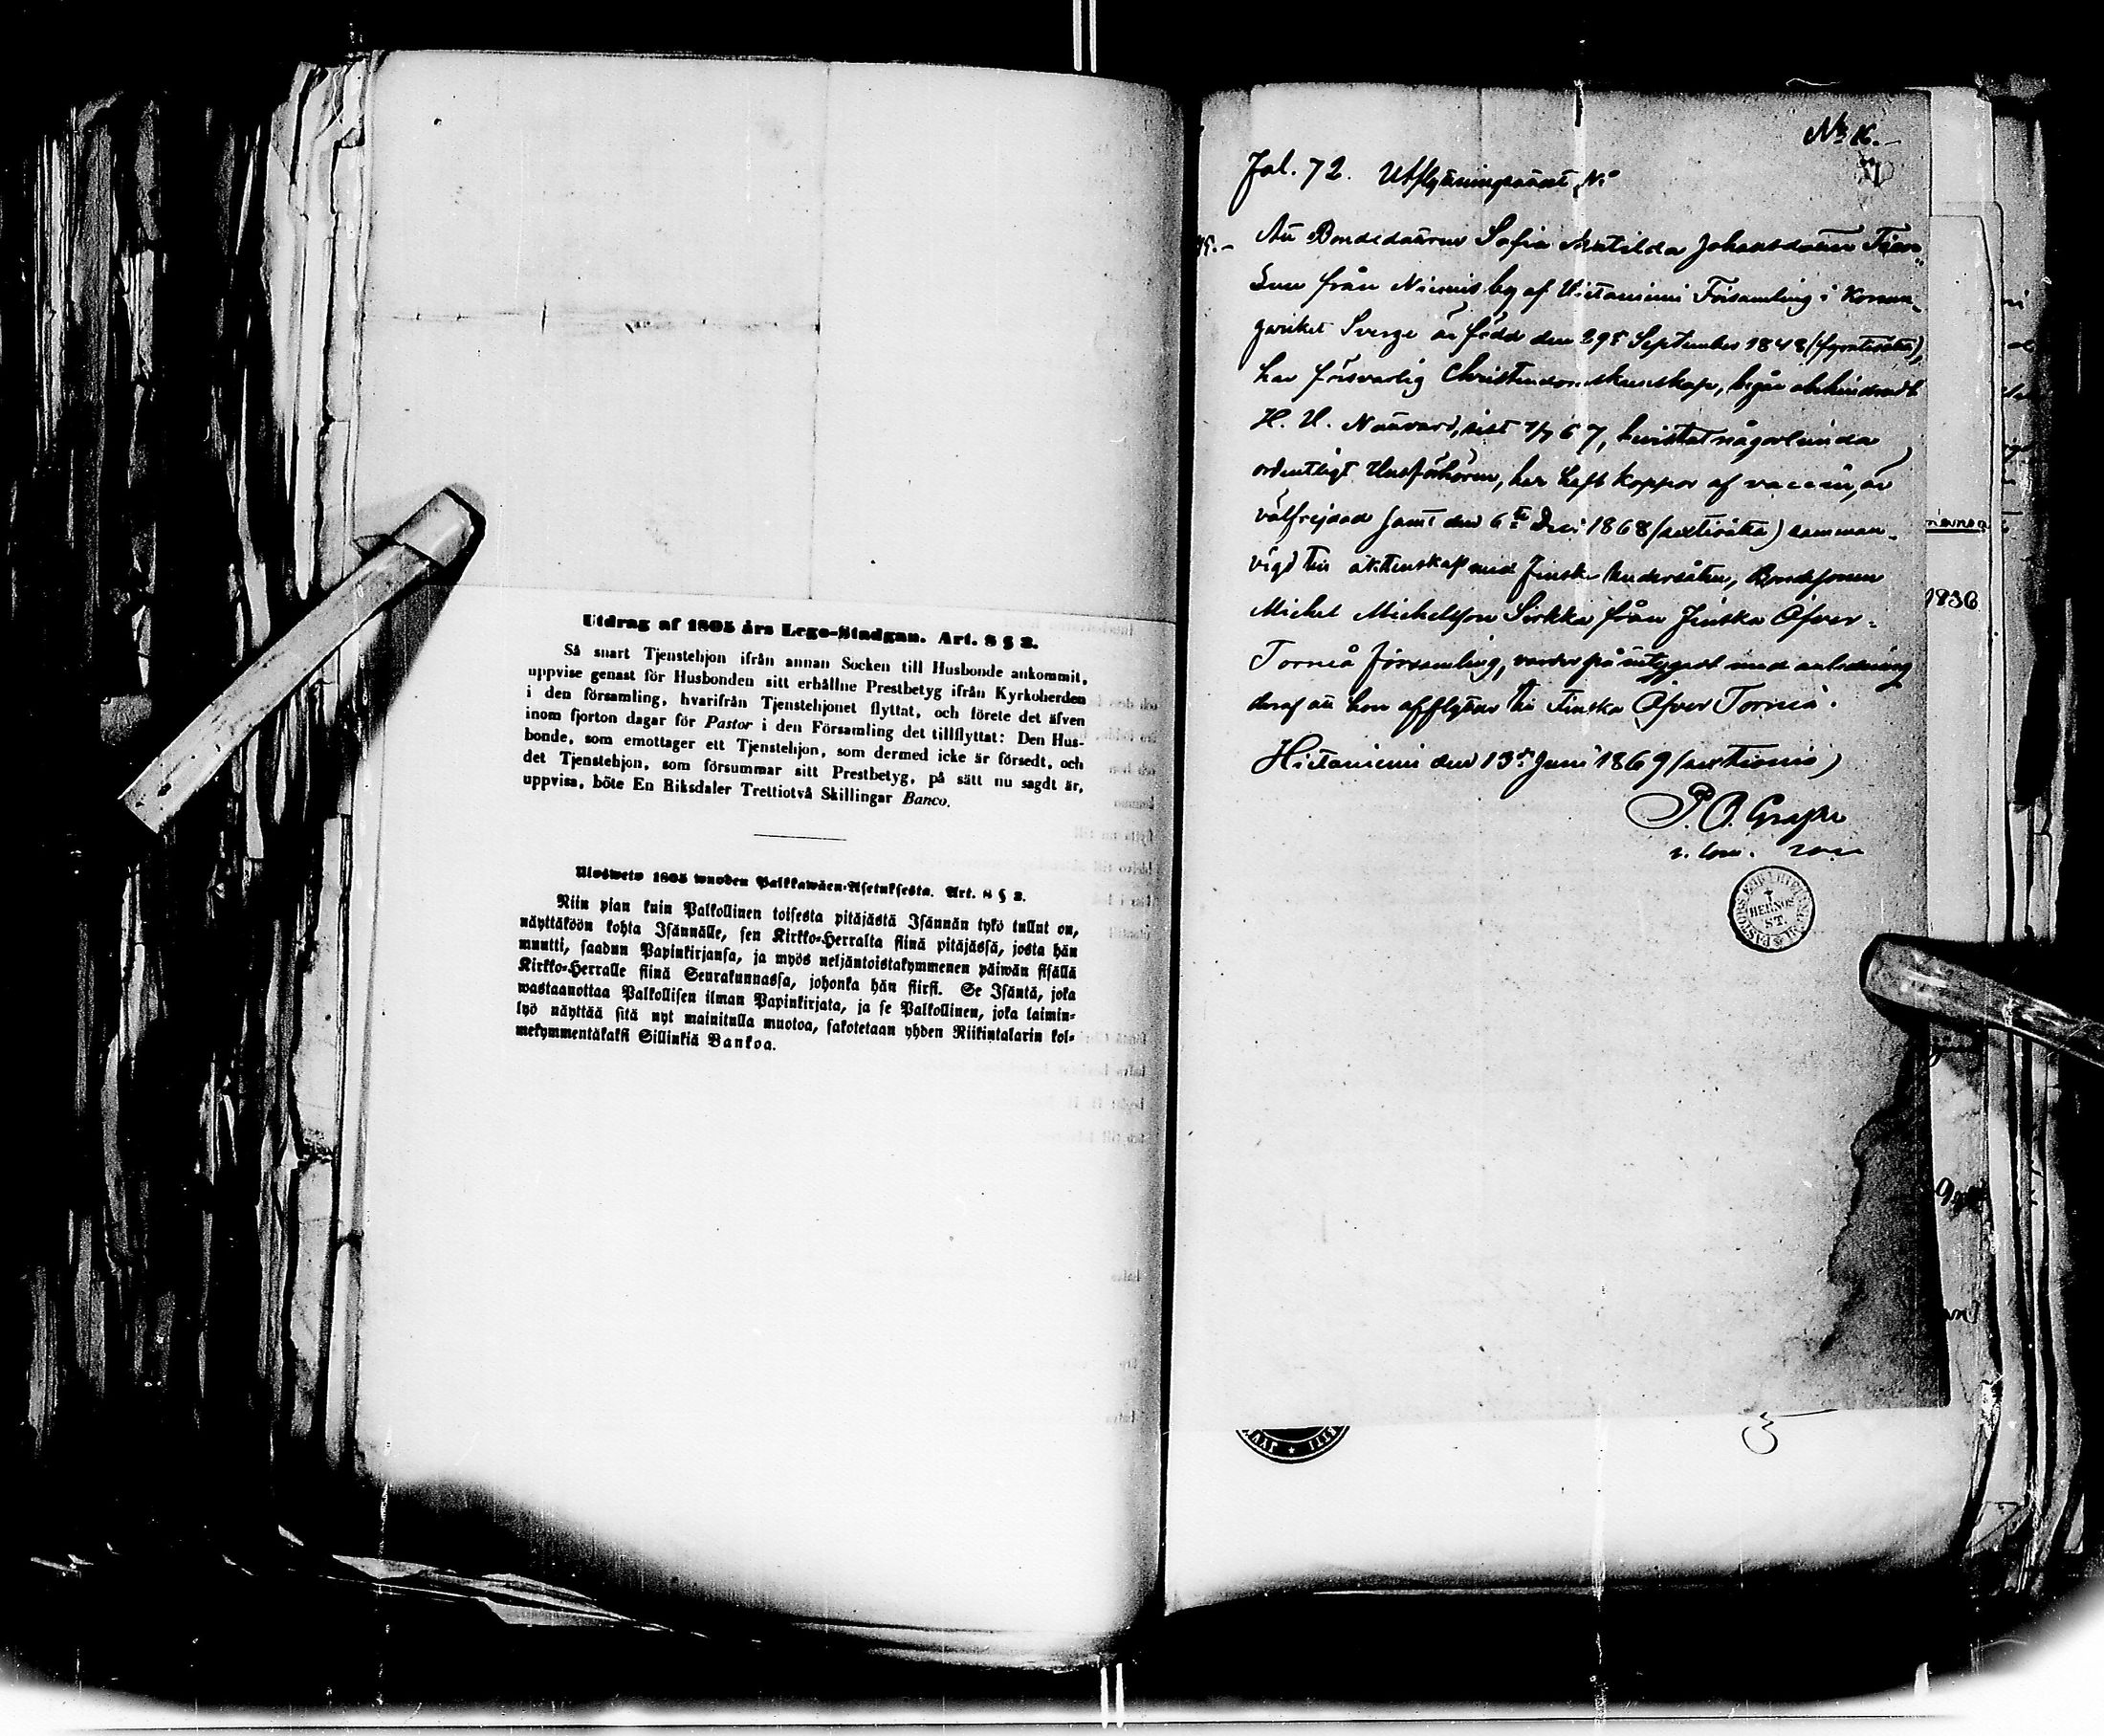 Utdrag af 1805 års Lego-Stadgan. Art. 8 § 2.
Så snart Tjenstehjon ifrån annan Socken till Husbonde ankommit,
uppvise genast för Husbonden sitt erhållne Prestbetyg ifrån Kyrkoherden
i den församling, hvarifrån Tjenstehjonet flyttat, och förete det äfven
inom fjorton dagar för Pastor i den Församling det tillflyttat: Den Hus-
bonde, som emottager ett Tjenstehjon, som dermed icke är försedt, och
det Tjenstehjon, som försummar sitt Prestbetyg, på sätt nu sagdt är,
uppvisa, böte En Riksdaler Trettiotvå Skillingar Banco.
Ulosweto 1805 wuoden Palkkawäen-Asetuksesta. Art. 8 § 2.
Niin pian kuin Palkollinen toisesta pitäjästä Isännän tykö tullut on,
näyttäköön kohta Isännälle, sen Kirkko-Herralta siinä pitäjässä, josta hän
muutti, saadun Papinkirjansa, ja myös neljäntoistakymmenen päiwän sisällä
Kirkko-Herralle siinä Seurakunnassa, johonka hän siirsi. Se Isäntä, joka
wastaanottaa Palkollisen ilman Papinkirjata, ja se Palkollinen, joka laimin-
lyö näyttää sitä nyt mainitulla muotoa, sakotetaan yhden Riikintalarin kol-
mekymmentäkaksi Sillinkiä Bankoa.
No 16.
Fol. 72. Utflyttningsattest No
Att Bondedottren Sofia Matilda Johansdotter
från Niemis by af Hietaniemi Församling i Konun-
gariket Sverge är född den 29de September 1848 (fyratioåtta),
har försvarlig Christendomskunskap, begår obehindradt
H. H. Nattvard, sist 7/7 67, bevistat någorlunda
ordentligt Husförhören, har haft koppor af vaccin, är
välfrejdad samt den 6te Dec: 1868 (sextioåtta) samman-
vigd till äktenskap med finske Undersåten, Bondesonen
Michel Michelsson Sirkka från Finska Öfver-
Torneå församling, varder på intygadt med anledning
deraf att hon afflyttar till Finska Öfver Torneå.
Hietaniemi den 13de Juni 1869 (sextionio)
P. O. Grape
v. Com.
HERNÖS
ST.
1836